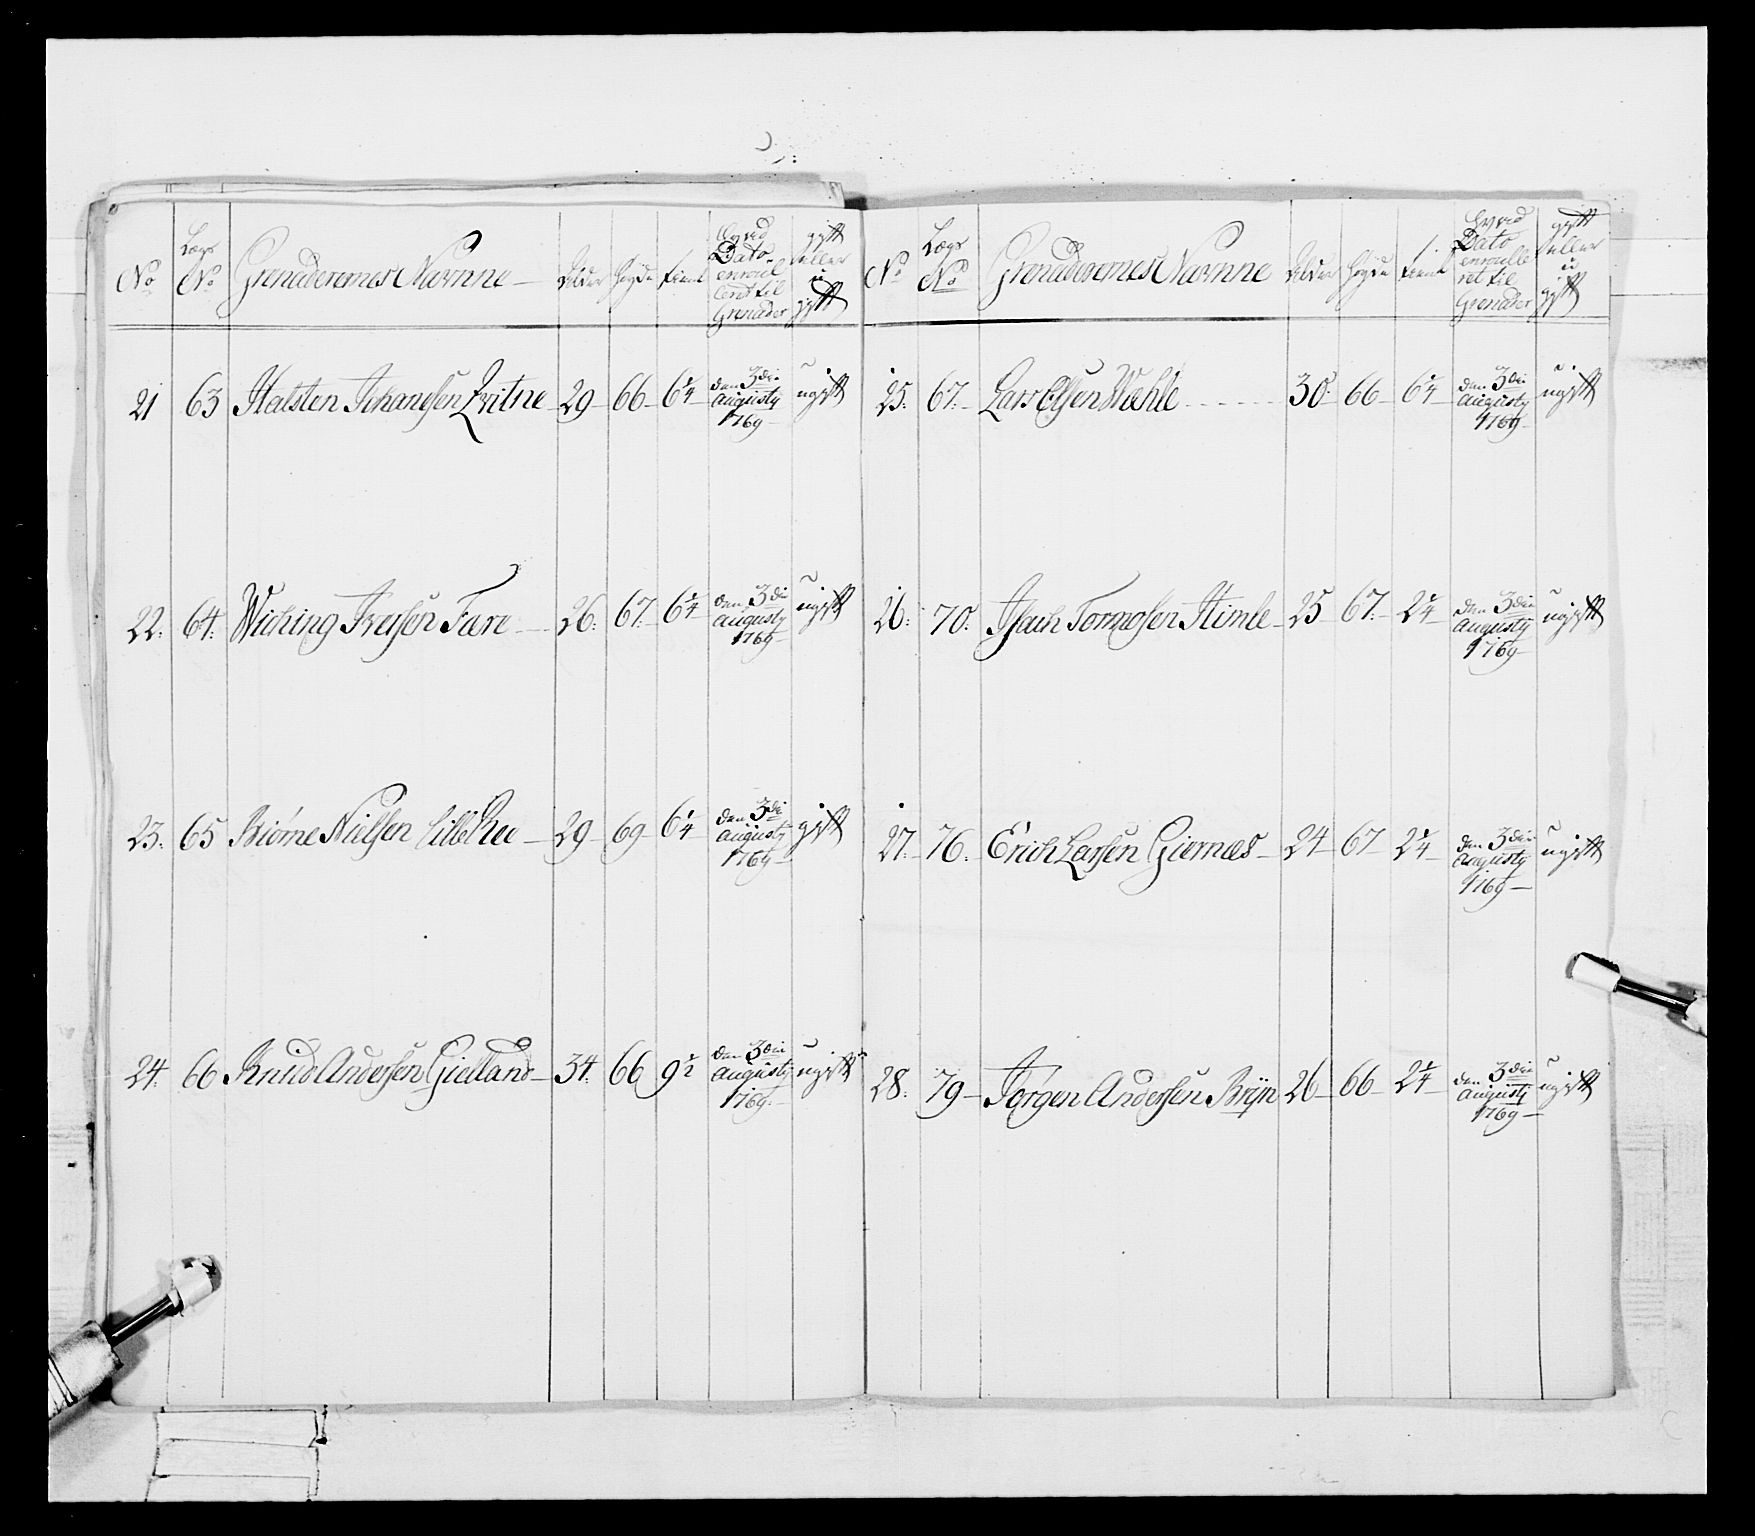 No Lægs No Grenaderernes Navnne Alder Høyde tient hvad Dato enroul leret til Grenader gift eller u gift
21 63 Halsten Johanesen Qvitne 29 66 6 1/4 den 3die augusty 1769 ugift
22: 64: Wiching Iversen Fære 26: 67: 6 1/4 den 3die augusty 1769 ugift
23: 65 Biørne Nielsen Lille Ree 29 69 6 1/4 den 3die augusty 1769 gift
24: 66 Knud Andersen Gielland 34: 66 9 1/2 den 3die augusty 1769 ugift
No Lægs No Grenaderernes Navnne Alder Høyde tient hvad Dato enroulle ret til Grenader gift eller u gift
25: 67: Lars Olsen Wæhle 30: 66 6 1/4 den 3die augusty 1769 ugift
26: 70: Isach Tormosen Himle 25 67: 2 1/4 den 3die augusty 1769 ugift
27: 76: Erich Larsen Giernæs 24 67 2 1/4 den 3die augusty 1769 ugift
28: 79 Jørgen Andersen Bryn 26 66 2 1/4 den 3die augusty 1769 ugift